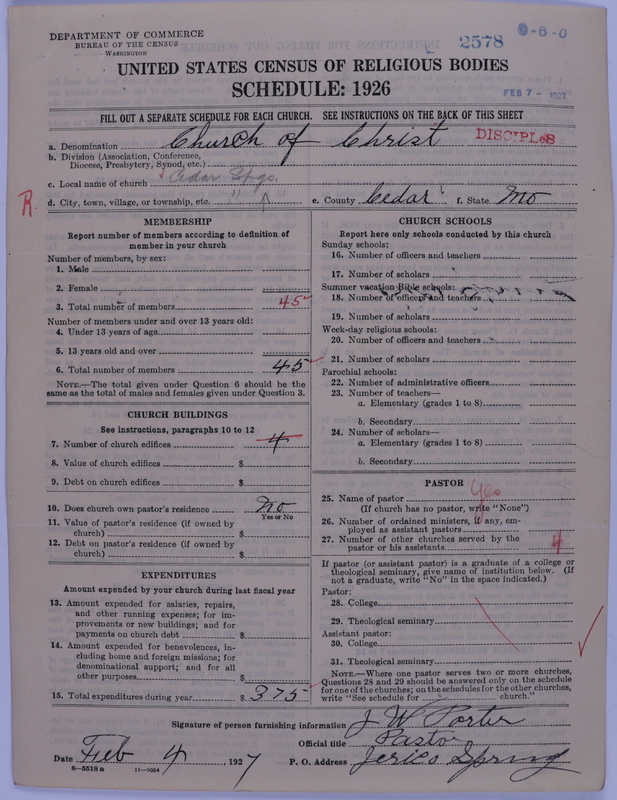 DEPARTMENT OF COMMERCE
BUREAU OF THE CENSUS
WASHINGTON
2578
9-6-0
UNITED STATES CENSUS OF RELIGIOUS BODIES
SCHEDULE: 1926
FEB 7 - 1927
FILL OUT A SEPARATE SCHEDULE FOR EACH CHURCH. SEE INSTRUCTIONS ON THE BACK OF THIS SHEET
a. Denomination Church of Christ DISCIPLES
b. Division (Association, Conference,
Diocese, Presbytery, Synod, etc.)
c. Local name of church Cedar Spgs.
d. City, town, village, or township, etc. " e. County Cedar f. State Mo
R.
MEMBERSHIP
Report number of members according to definition of
member in your church
Number of members, by sex:
1. Male
2. Female
3. Total number of members 45
Number of members under and over 13 years old:
4. Under 13 years of age
5. 13 years old and over
6. Total number of members 45
NOTE.—The total given under Question 6 should be the
same as the total of males and females given under Question 3.
CHURCH BUILDINGS
See instructions, paragraphs 10 to 12
7. Number of church edifices 4
8. Value of church edifices $
9. Debt on church edifices $
10. Does church own pastor's residence No
Yes or No
11. Value of pastor's residence (if owned by
church) $
12. Debt on pastor's residence (if owned by
church) $
EXPENDITURES
Amount expended by your church during last fiscal year
13. Amount expended for salaries, repairs,
and other running expenses; for im-
provements or new buildings; and for
payments on church debt $
14. Amount expended for benevolences, in-
cluding home and foreign missions; for
denominational support; and for all
other purposes $
15. Total expenditures during year $ 375
CHURCH SCHOOLS
Report here only schools conducted by this church
Sunday schools:
16. Number of officers and teachers
17. Number of scholars
Summer vacation Bible schools:
18. Number of officers and teachers
19. Number of scholars
Week-day religious schools:
20. Number of officers and teachers
21. Number of scholars
Parochial schools:
22. Number of administrative officers
23. Number of teachers—
a. Elementary (grades 1 to 8)
b. Secondary
24. Number of scholars—
a. Elementary (grades 1 to 8)
b. Secondary
PASTOR
25. Name of pastor Yes
(If church has no pastor, write "None")
26. Number of ordained ministers, if any, em-
ployed as assistant pastors
27. Number of other churches served by the
pastor or his assistants 4
If pastor (or assistant pastor) is a graduate of a college or
theological seminary, give name of institution below. (If
not a graduate, write "No" in the space indicated.)
Pastor:
28. College
29. Theological seminary
Assistant pastor:
30. College
31. Theological seminary
NOTE.—Where one pastor serves two or more churches,
Questions 28 and 29 should be answered only on the schedule
for one of the churches; on the schedules for the other churches,
write "See schedule for church."
Signature of person furnishing information J W Porter
Official title Pastor
Date Feb 4, 1927 P. O. Address Jerico Spring
6-5518 a 11-1034